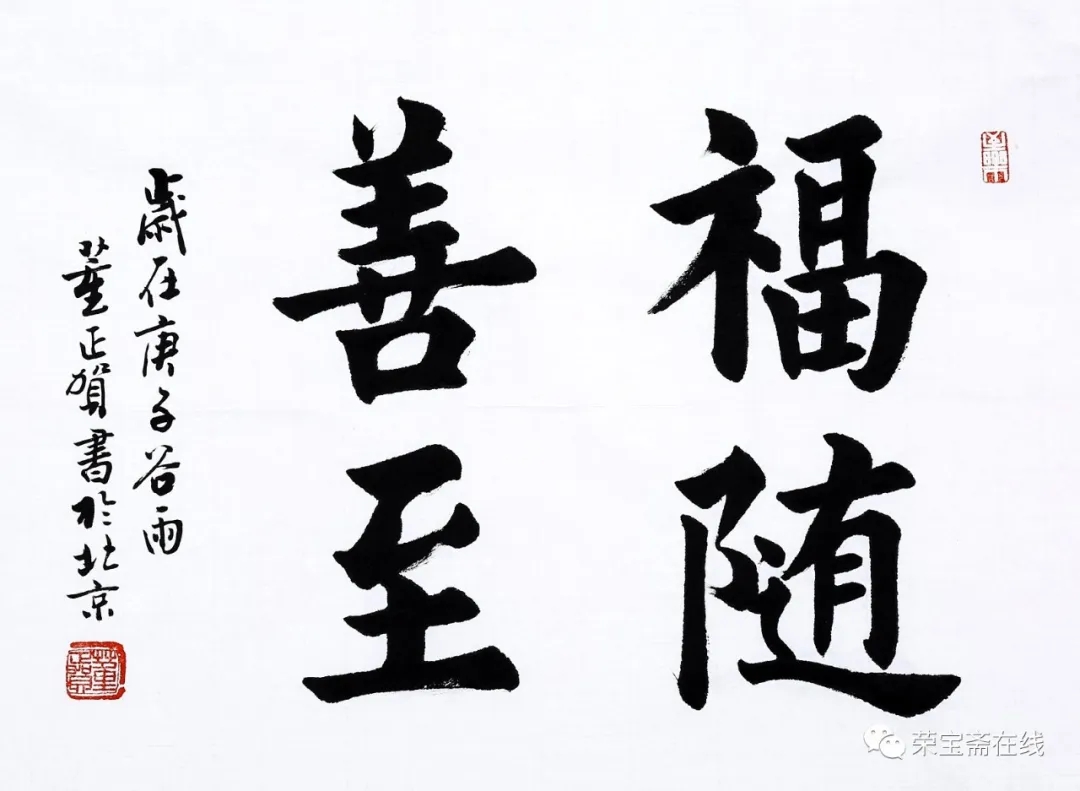 福随
善至
歲在庚子谷雨
董正賀書於北京
荣宝斋在线